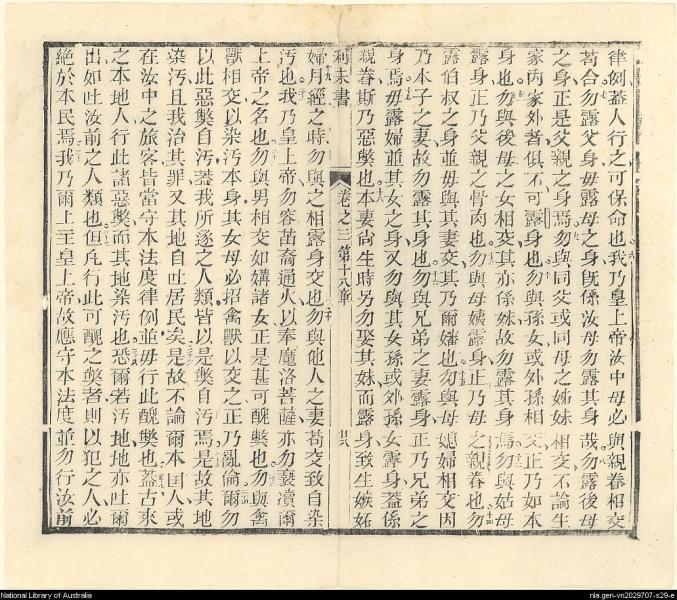 律例蓋人行之可保命也我乃皇上帝汝中毋必與親眷相交
苟合勿露父身毋露母之身旣係汝母勿露其身哉勿露後母
之身正是父親之身焉勿與同父或同母之姊妹相交不論生
家內家外者俱不可露身也勿與孫女或外孫相交正乃如本
身也勿與後母之女相交其亦係妹故勿露其身焉勿與姑母
露身正乃父親之骨肉也勿與母姨露身正乃母之親眷也勿
露伯叔之身並毋與其妻交其乃爾嬸也勿與母媳婦相交因
乃本子之妻故勿露其身也勿與兄弟之妻露身正乃兄弟之
身焉毋露婦並其女之身又勿與其女孫或外孫女露身蓋係
親眷斯乃惡弊也本妻尙生時另勿娶其妹而露身致生嫉妬
利未書 卷之三 第十八章
婦月經之時勿與之相露身交也勿與他人之妻苟交致自染
汚也我乃皇上帝勿容苗裔通火以奉魔洛菩薩亦勿褻瀆爾
上帝之名也勿與男相交如媾諸女正是甚可醜弊也勿與禽
獸相交以染汚本身其女毋必招禽獸以交之正乃亂倫爾勿
以此惡弊自汚蓋我所逐之人類皆以是弊自汚焉是故其地
染汚且我治其罪又其地自吐居民矣是故不論爾本囯人或
在汝中之旅客皆當守本法度律例並毋行此醜弊也蓋古來
之本地人行此諸惡弊而其地染汚也恐爾若汚地地亦吐爾
出如吐汝前之人類也但凢行此可醜之弊者則以犯之人必
絶於本民焉我乃爾上主皇上帝故應守本法度並勿行汝前
National Library of Australia
nla.gen-vn2029707-s29-e